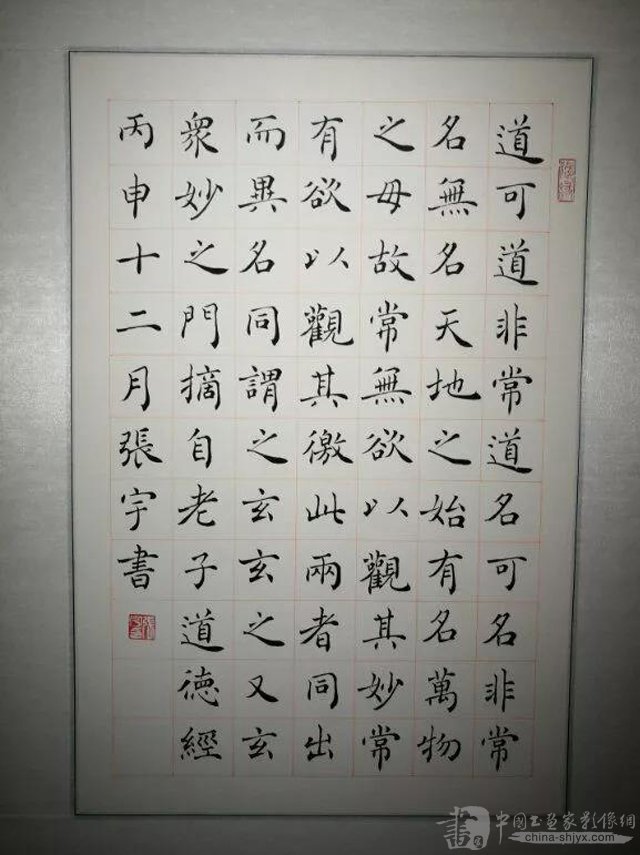 道可道非常道名可名非常
名無名天地之始有名萬物
之毋故常無欲以觀其妙常
有欲以觀其徼此兩者同出
而異名同謂之玄玄之又玄
衆妙之門摘自老子道德經
丙申十二月張宇書
中國书画家影像網
china-shjyx.com